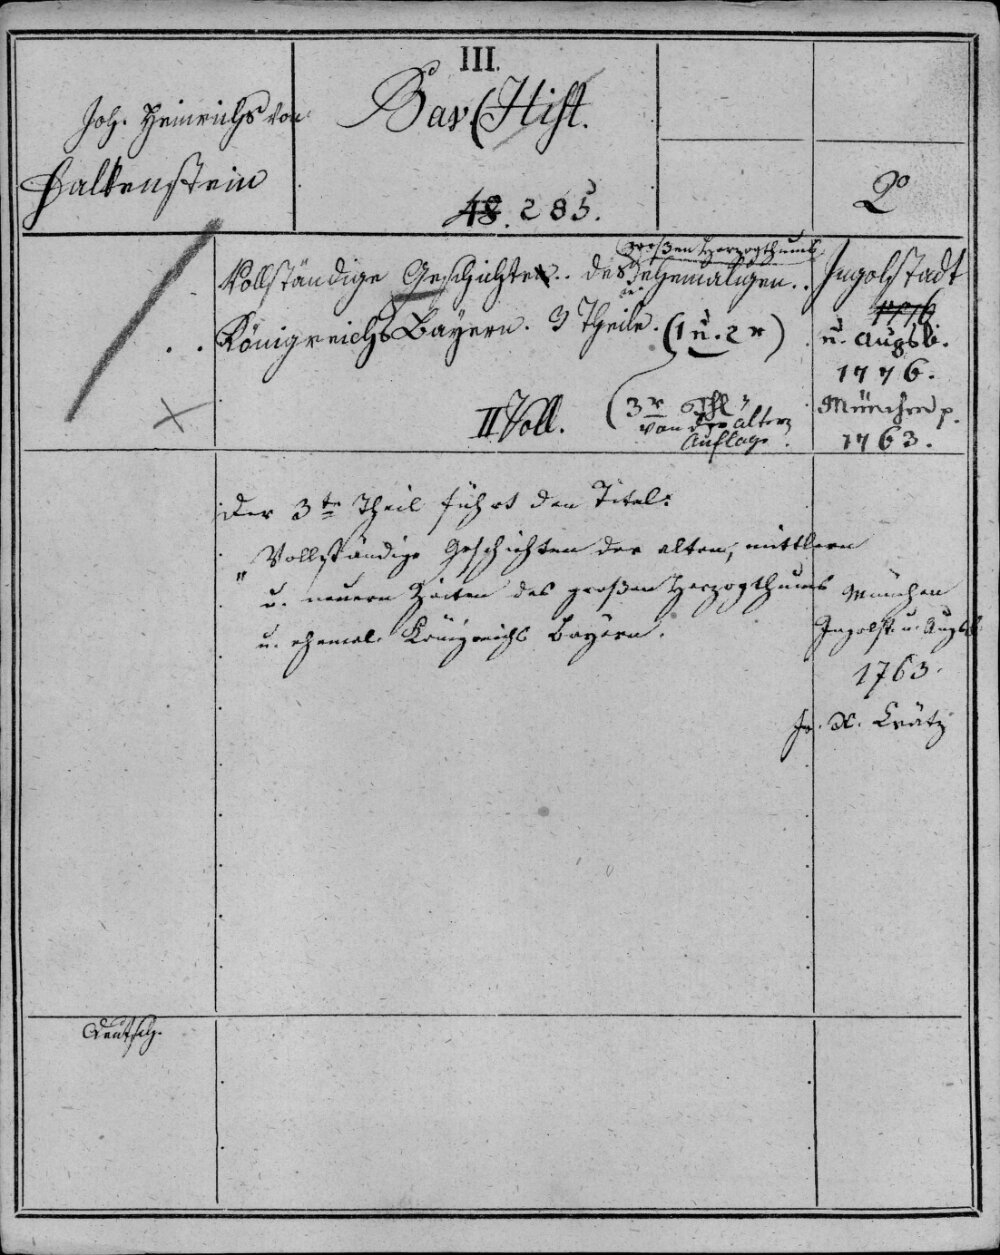 III.
Joh. Heinrichs von
Falkenstein
Bav. Hist.
48. 285.
2º
großen Herzogthums
Vollständige Geschichten.. des ehemaligen..
Königreichs Bayern. 3 Theile. (1 u. 2r)
II Voll.
(3r Thl
von der ältern
Auflage.
Ingolstadt
1776
u. Augsb.
1776.
München p.
1763.
Der 3te Theil führt den Titel:
„Vollständige Geschichten der alten, mittlern
u. neuern Zeiten des großen Herzogthums
u. ehemal. Königreichs Bayern.
München
Ingolst. u. Augsb.
1763.
Fr. X. Crätz
Deutsch.